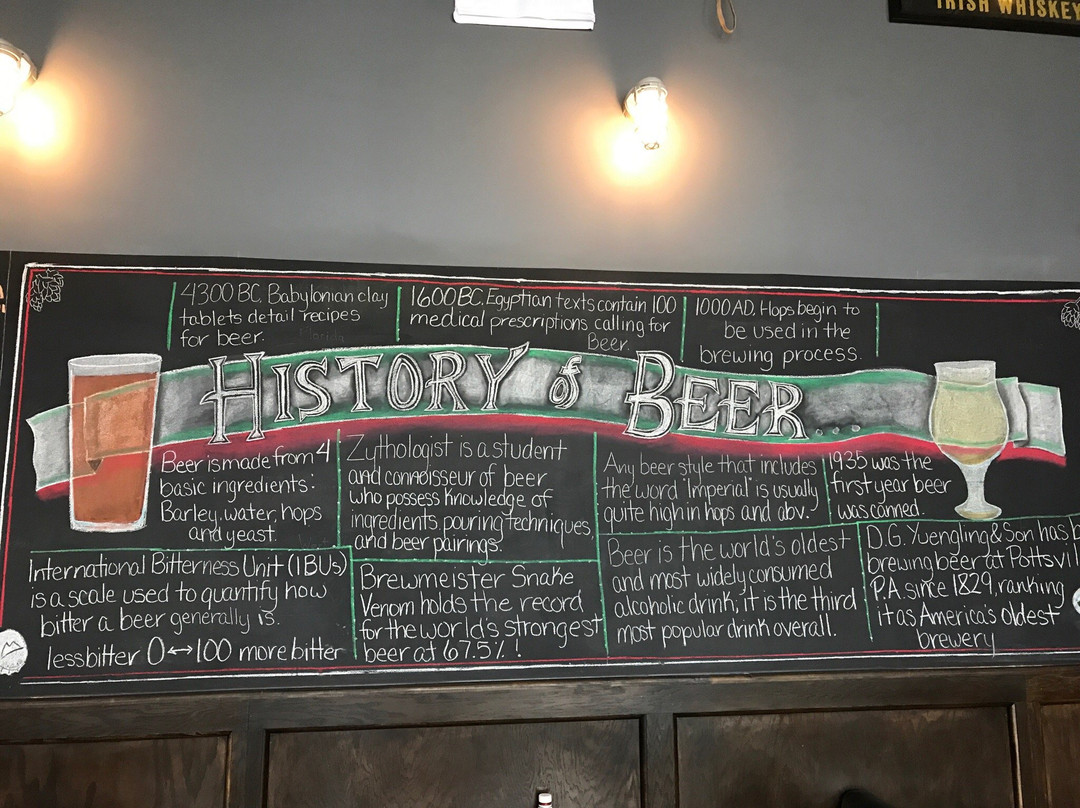 IRISH WHISKEY
4300 BC, Babylonian clay
tablets detail recipes
for beer.
1600 BC, Egyptian texts contain 100
medical prescriptions calling for
Beer.
1000 AD, Hops begin to
be used in the
brewing process.
HISTORY of BEER...
Beer is made from 4
basic ingredients:
Barley, water, hops
and yeast.
Zythologist is a student
and connoisseur of beer
who possess knowledge of
ingredients, pouring techniques,
and beer pairings.
Any beer style that includes
the word "Imperial" is usually
quite high in hops and abv.
1935 was the
first year beer
was canned.
International Bitterness Unit (IBUs)
is a scale used to quantify how
bitter a beer generally is.
less bitter 0↔100 more bitter
Brewmeister Snake
Venom holds the record
for the world's strongest
beer at 67.5%!
Beer is the world's oldest
and most widely consumed
alcoholic drink; it is the third
most popular drink overall.
D.G. Yuengling & Son has
brewing beer at Pottsvil
P.A. since 1829, ranking
it as America's oldest
brewery